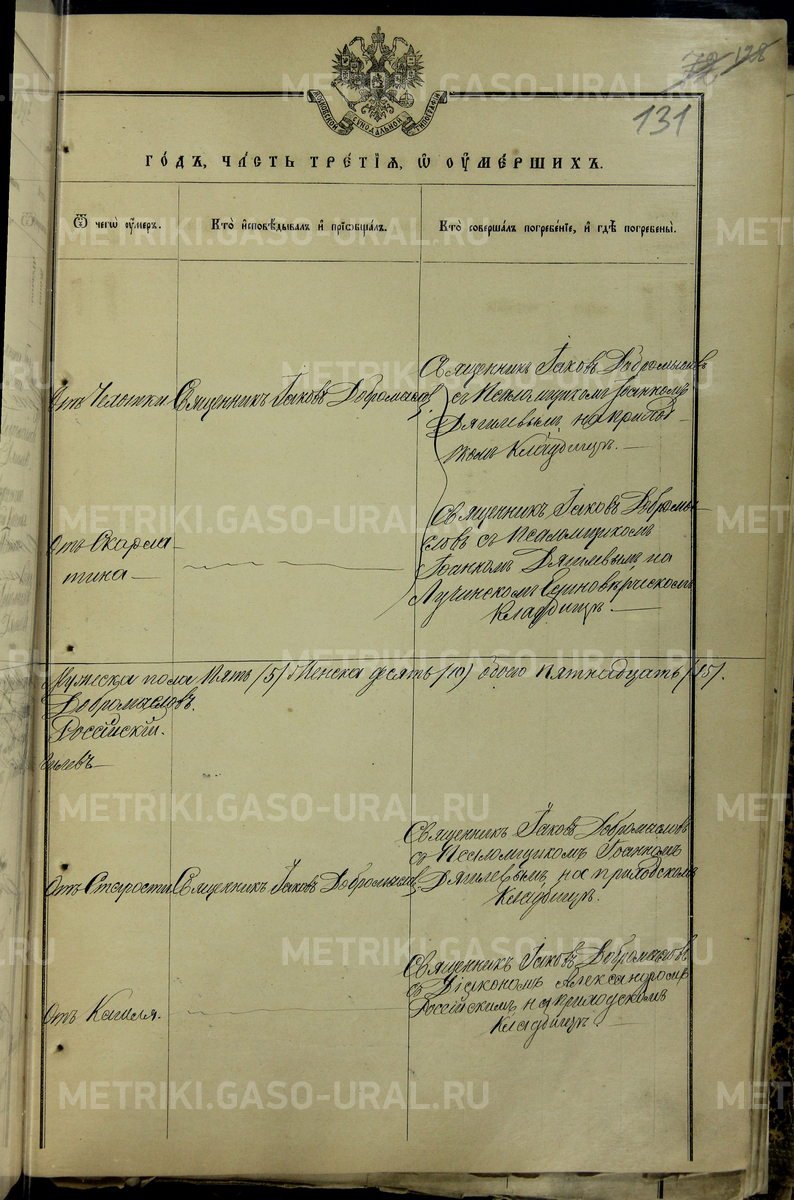 72 128
131
МОСКОВСКОЙ СѴНОДАЛЬНОЙ ТИПОГРАФІИ
ГО́ДЪ, ЧА́СТЬ ТРЕ́ТІѦ, Ѿ ОУ҆МЕ́РШИХЪ.
Ѿ чегѡ̀ оу҆́меръ.
Кто̀ и҆сповѣ́дывалъ и҆ прїѡбща́лъ.
Кто̀ соверша́лъ погребе́нїе, и҆ гдѣ̀ погребены̀.
Отъ
Священникъ Іаковъ Добромысловъ
Священникъ Іаковъ Добромысловъ
съ Псаломщикомъ Іоанномъ
Дягилевымъ на приход-
скомъ Кладбищѣ.
Отъ Скарла-
тина
Священникъ Іаковъ Добромы-
словъ съ Псаломщикомъ
Іоанномъ Дягилевымъ на
Единовѣрческомъ
Кладбищѣ.
Мужеска пола Пять (5) Женска десять (10) обоего Пятнадцать (15).
Добромысловъ.
Россійскій.
гилевъ
Отъ Старости
Священникъ Іаковъ Добромысловъ
Священникъ Іаковъ Добромысловъ
съ Псаломщикомъ Іоанномъ
Дягилевымъ на приходскомъ
Кладбищѣ.
Отъ Кашля.
Священникъ Іаковъ Добромысловъ
съ Діакономъ Александромъ
Россійскимъ на приходскомъ
Кладбищѣ
METRIKI.GASO-URAL.RU